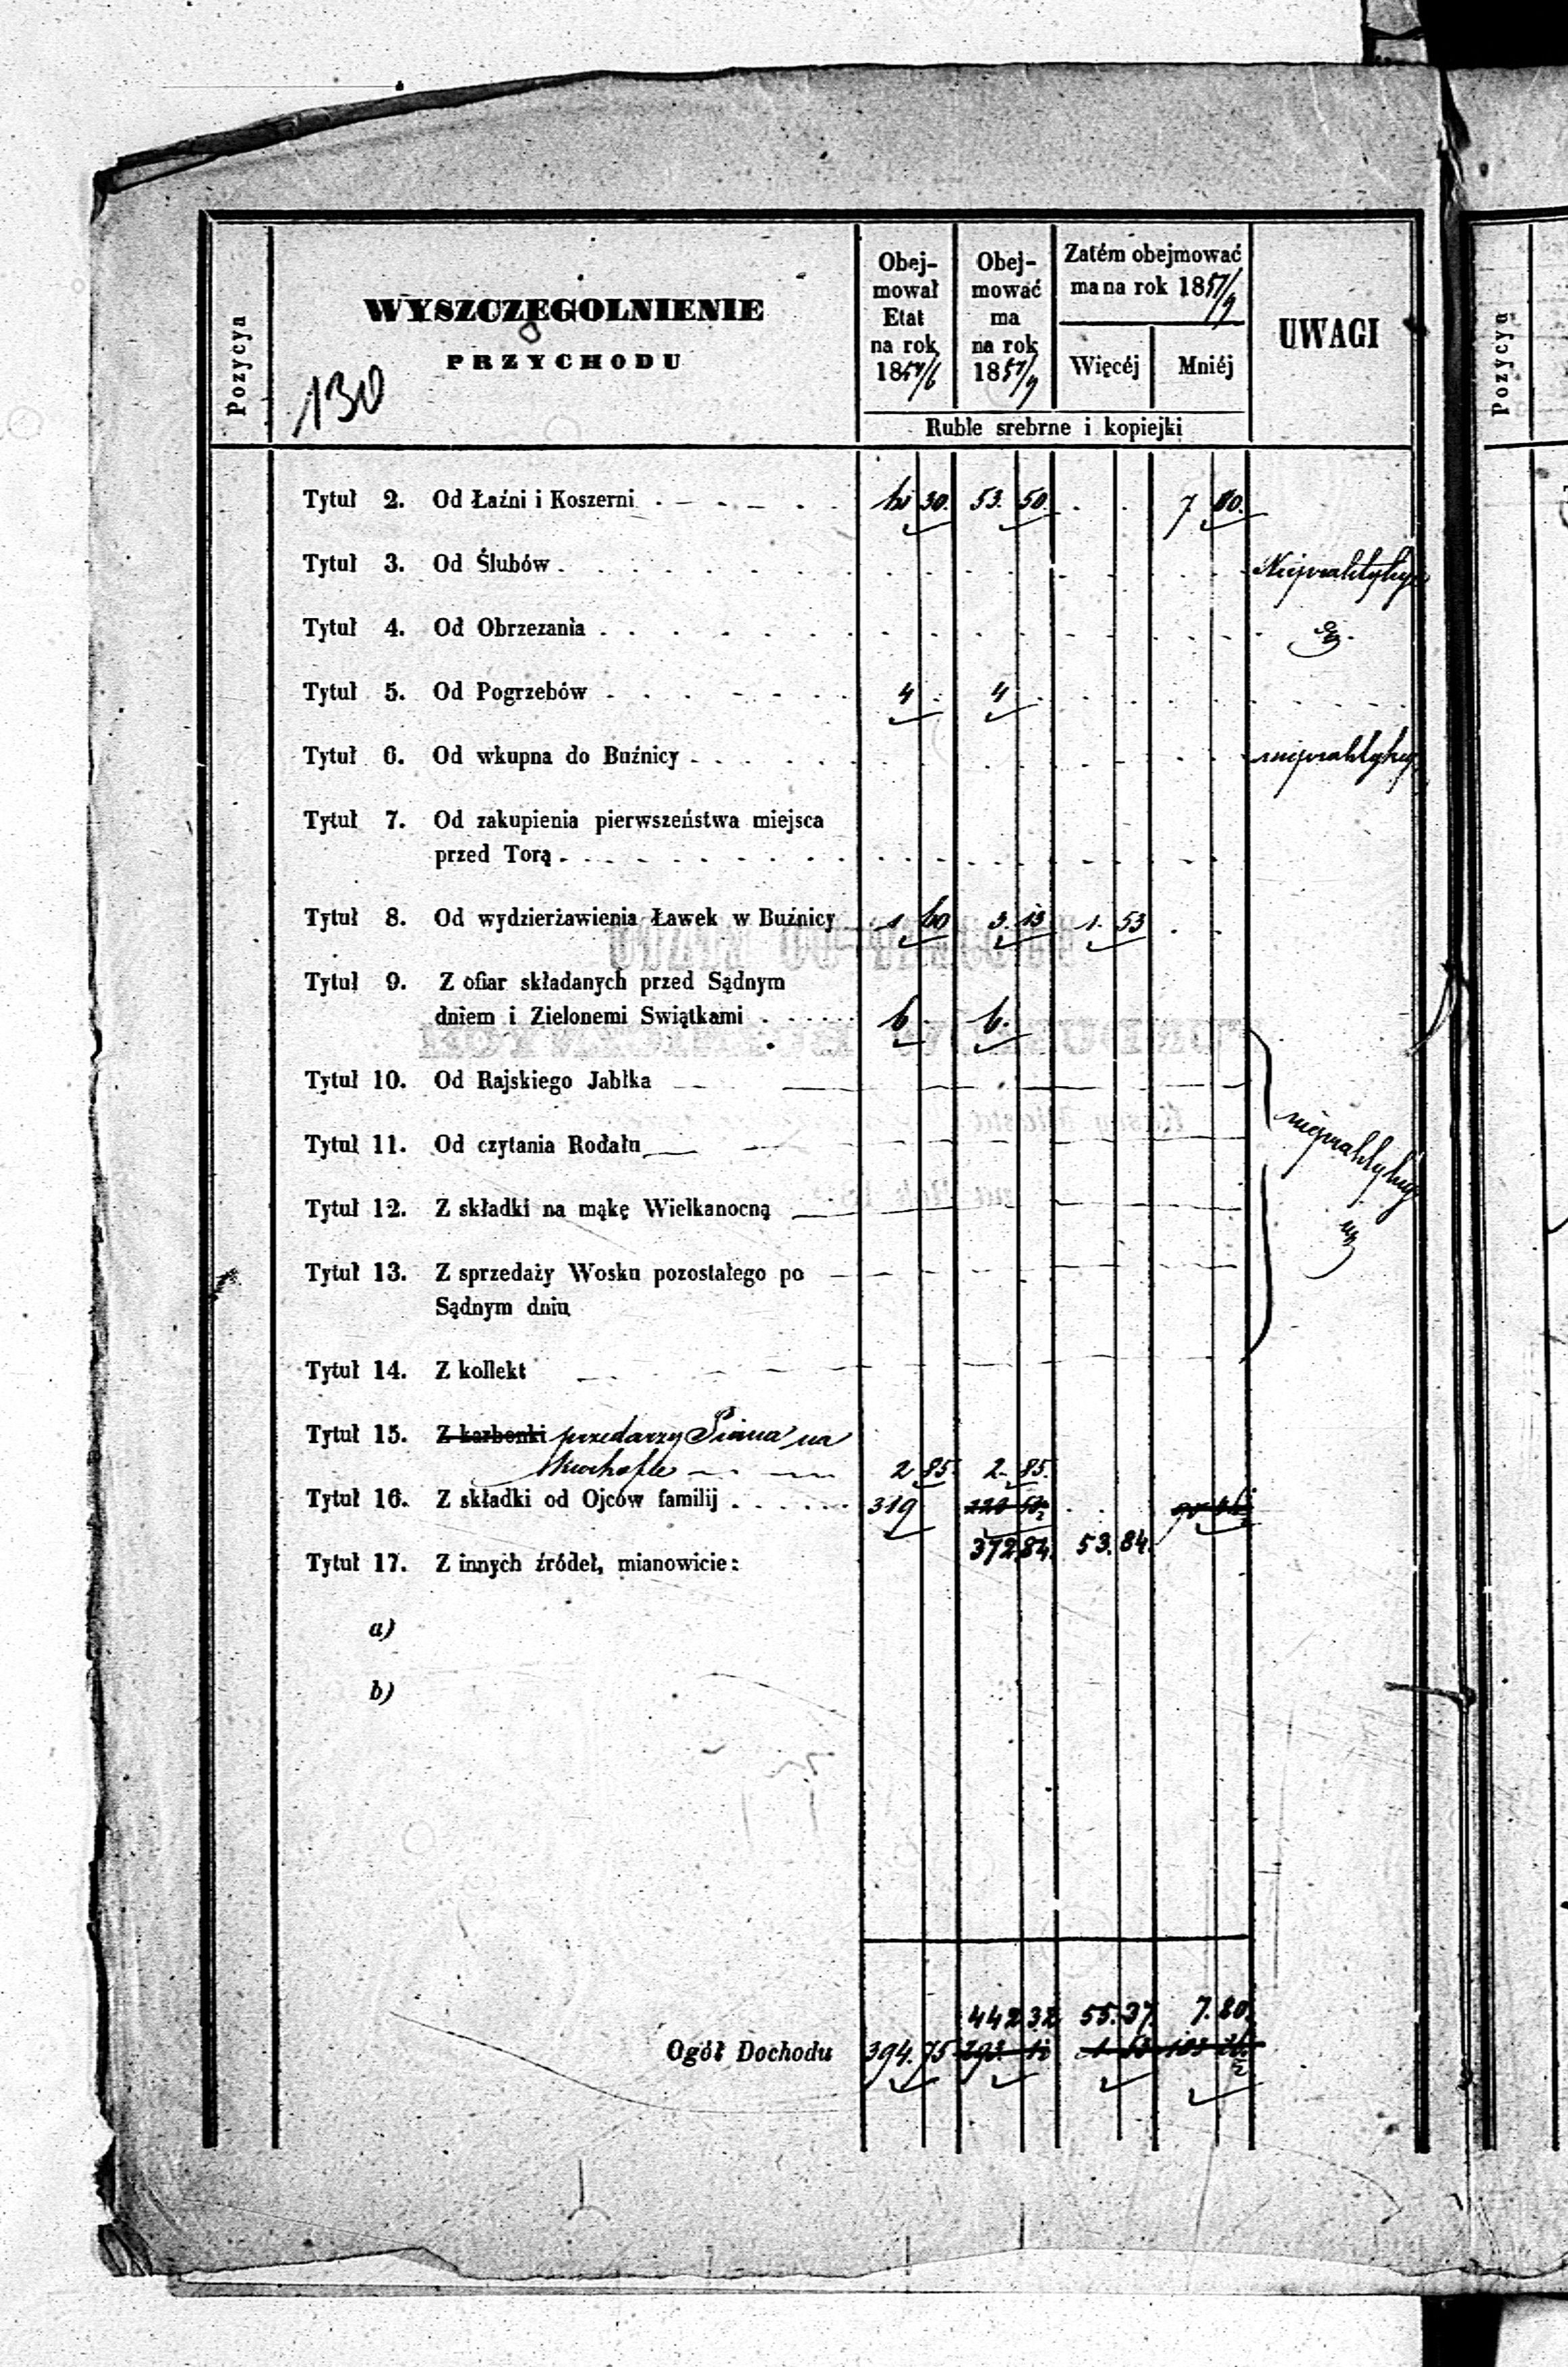 Pozycya
WYSZCZEGOLNIENIE
PRZYCHODU
130
Obej-
mował
Etat
na rok
185 /6
Obej-
mować
ma
na rok
1857/9
Zatém obejmować
ma na rok 1857/9
Więcéj
Mniéj
UWAGI
Ruble srebrne i kopiejki
Tytuł 2. Od Łaźni i Koszerni 61 30. 53. 50. 7 80.
Tytuł 3. Od Ślubów Niepraktykuje
Tytuł 4. Od Obrzezania
Tytuł 5. Od Pogrzebów 4 4
Tytuł 6. Od wkupna do Buźnicy niepraktykuje
Tytuł 7. Od zakupienia pierwszeństwa miejsca
przed Torą
Tytuł 8. Od wydzierżawienia Ławek w Buźnicy 1 60 3. 13 1. 53
Tytuł 9. Z ofiar składanych przed Sądnym
dniem i Zielonemi Swiątkami 6 6.
Tytuł 10. Od Rajskiego Jabłka
Tytuł 11. Od czytania Rodału niepraktykuje
Tytuł 12. Z składki na mąkę Wielkanocną
Tytuł 13. Z sprzedaży Wosku pozostałego po
Sądnym dniu
Tytuł 14. Z kollekt
Tytuł 15. Z karbonki przedarzy Siana na
2 85. 2. 85.
Tytuł 16. Z składki od Ojców familij 319
372 84. 53. 84.
Tytuł 17. Z innych źródeł, mianowicie:
a)
b)
442 32 55. 37. 7. 80.
Ogół Dochodu 394. 75
Pozycya